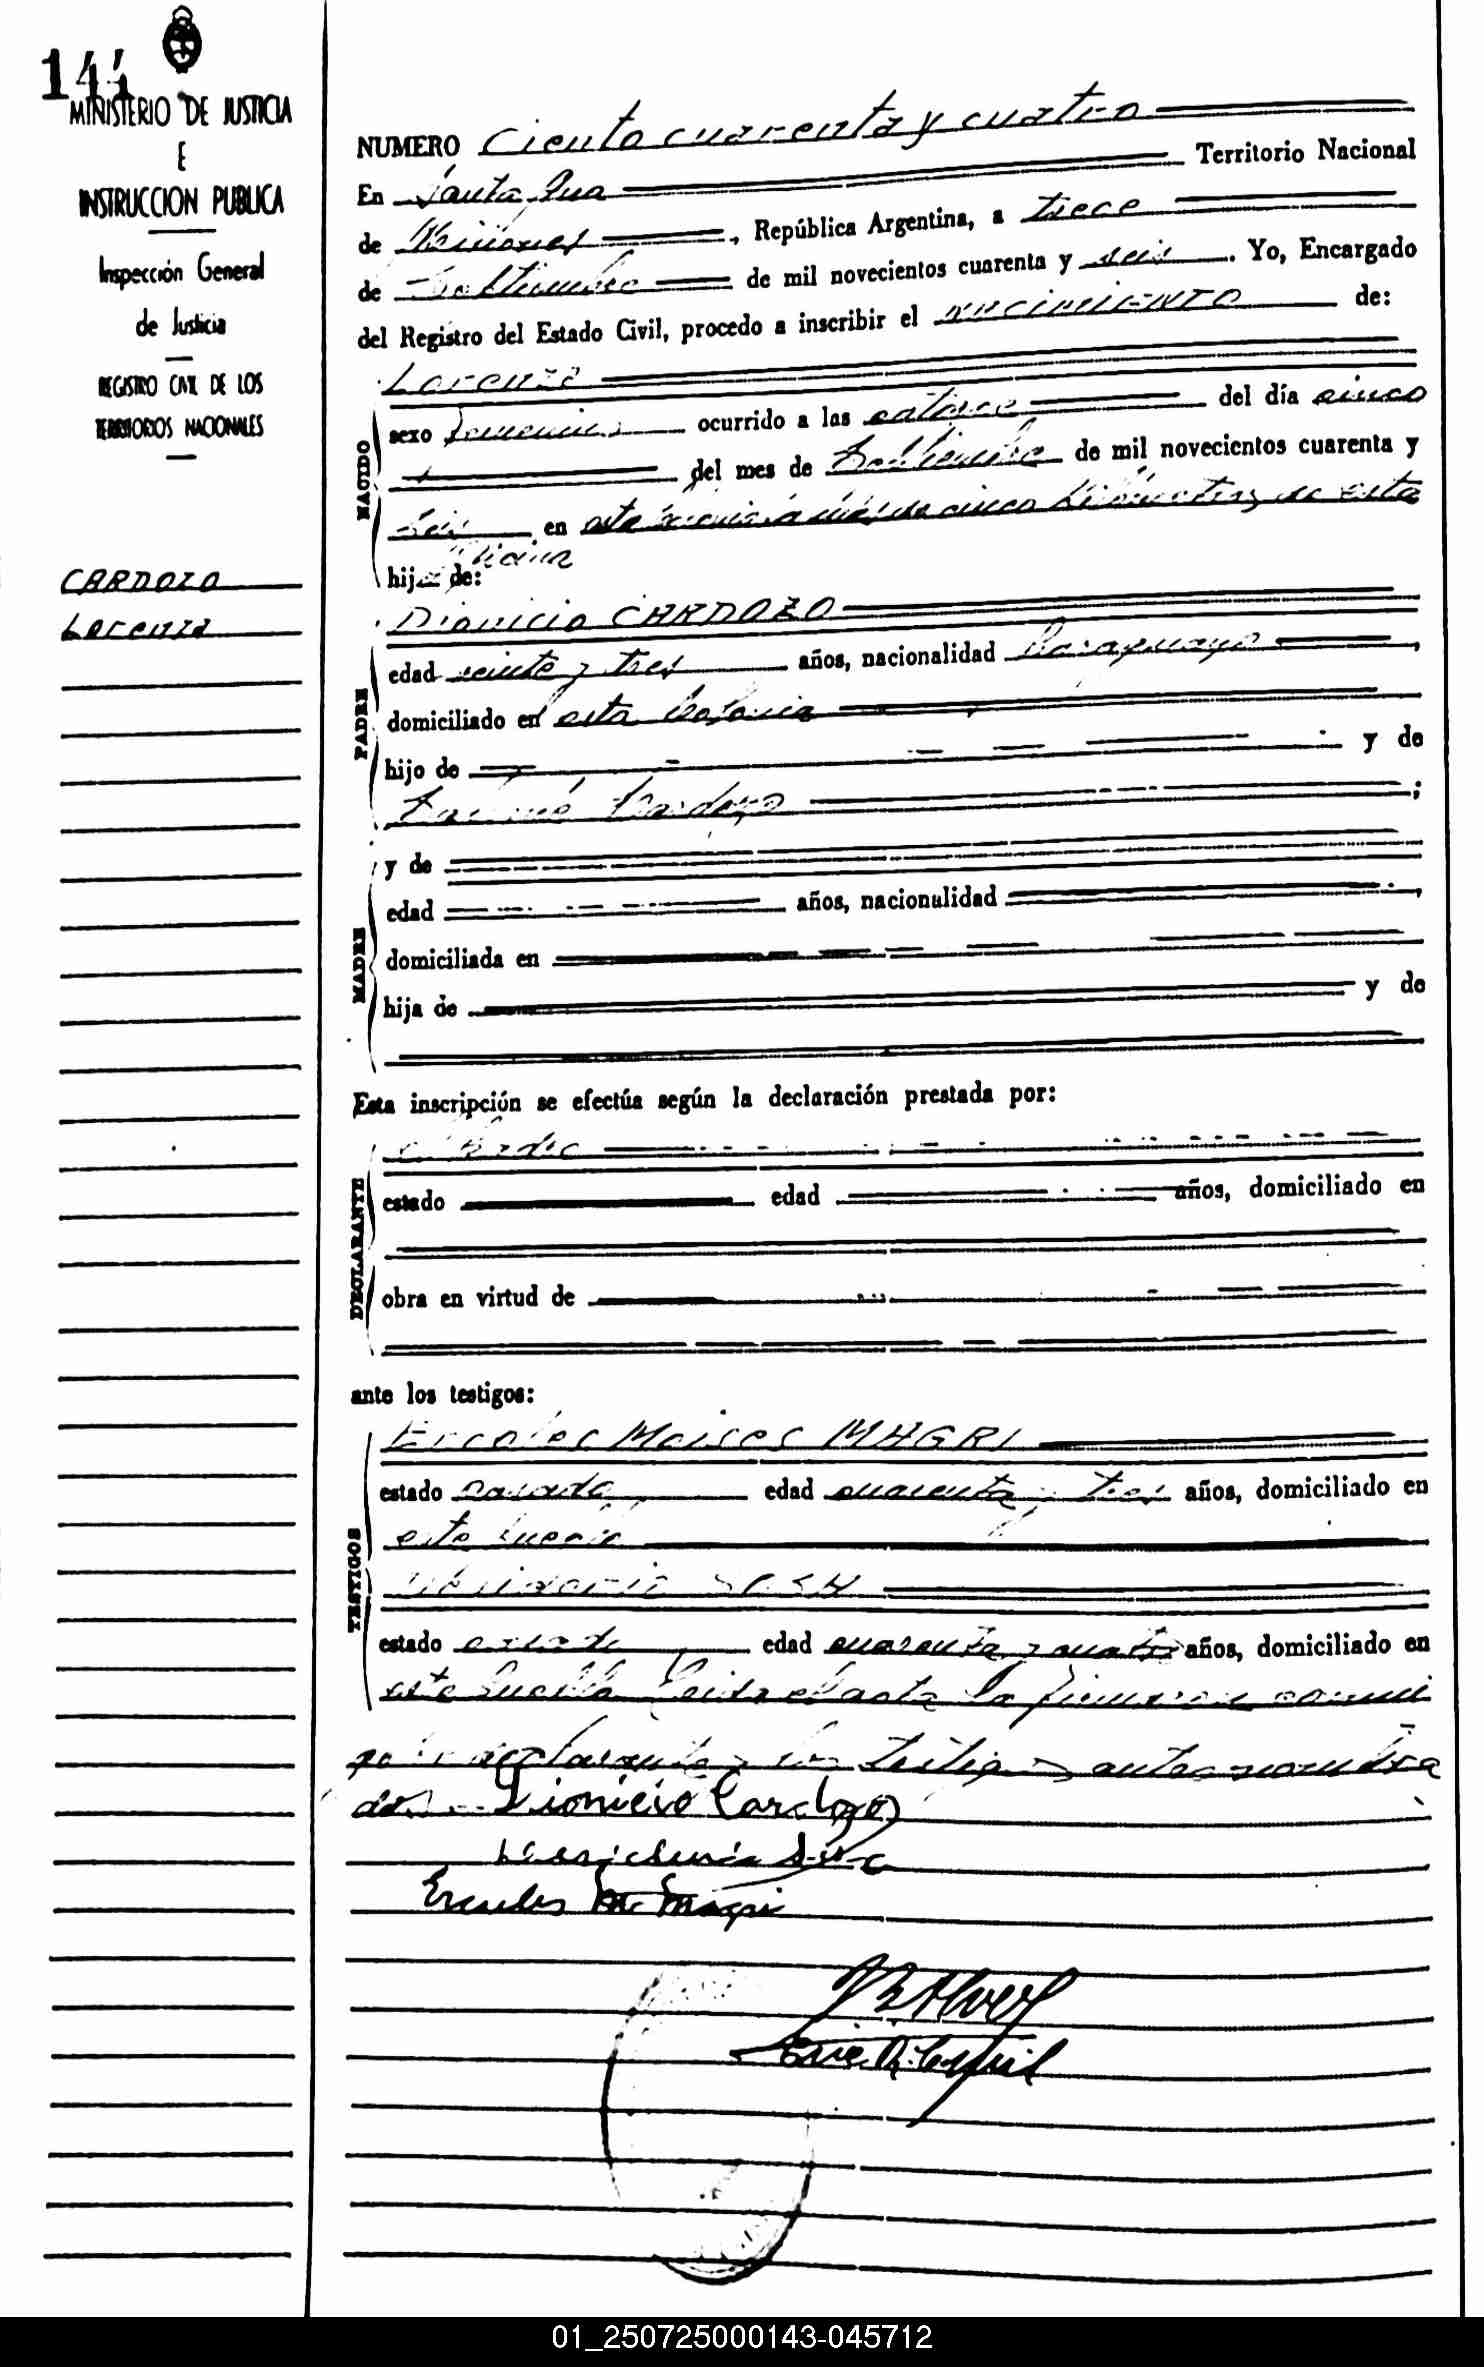 144
MINISTERIO DE JUSTICIA
E
INSTRUCCION PUBLICA
Inspección General
de Justicia
REGISTRO CIVIL DE LOS
TERRITORIOS NACIONALES
CARDOZO
Lorenza
NUMERO Ciento cuarenta y cuatro
En Santa Ana Territorio Nacional
de Misiones, República Argentina, a trece
de Septiembre de mil novecientos cuarenta y seis. Yo, Encargado
del Registro del Estado Civil, procedo a inscribir el nacimiento de:
NACIDO
Lorenza
sexo femenino ocurrido a las catorce del día cinco
del mes de Septiembre de mil novecientos cuarenta y
seis en este a más de cinco kilometros de esta
hija de:
PADRE
Dionicio CARDOZO
edad veinte y tres años, nacionalidad Paraguayo,
domiciliado en esta Colonia
hijo de y de
Cardozo;
MADRE
y de
edad años, nacionalidad,
domiciliada en
hija de y de
Esta inscripción se efectúa según la declaración prestada por:
DECLARANTE
el Padre
estado edad años, domiciliado en
obra en virtud de
ante los testigos:
TESTIGOS
Ercoles Moises MAGRI
estado casado edad cuarenta y tres años, domiciliado en
este pueblo
SOSA
estado casado edad cuarenta y cuatro años, domiciliado en
este pueblo Leida el acta la firmaron conmi
go declarante y los testigos antes nombra
dos. Dionicio Cardozo
Ercoles M. Magri
01_250725000143-045712